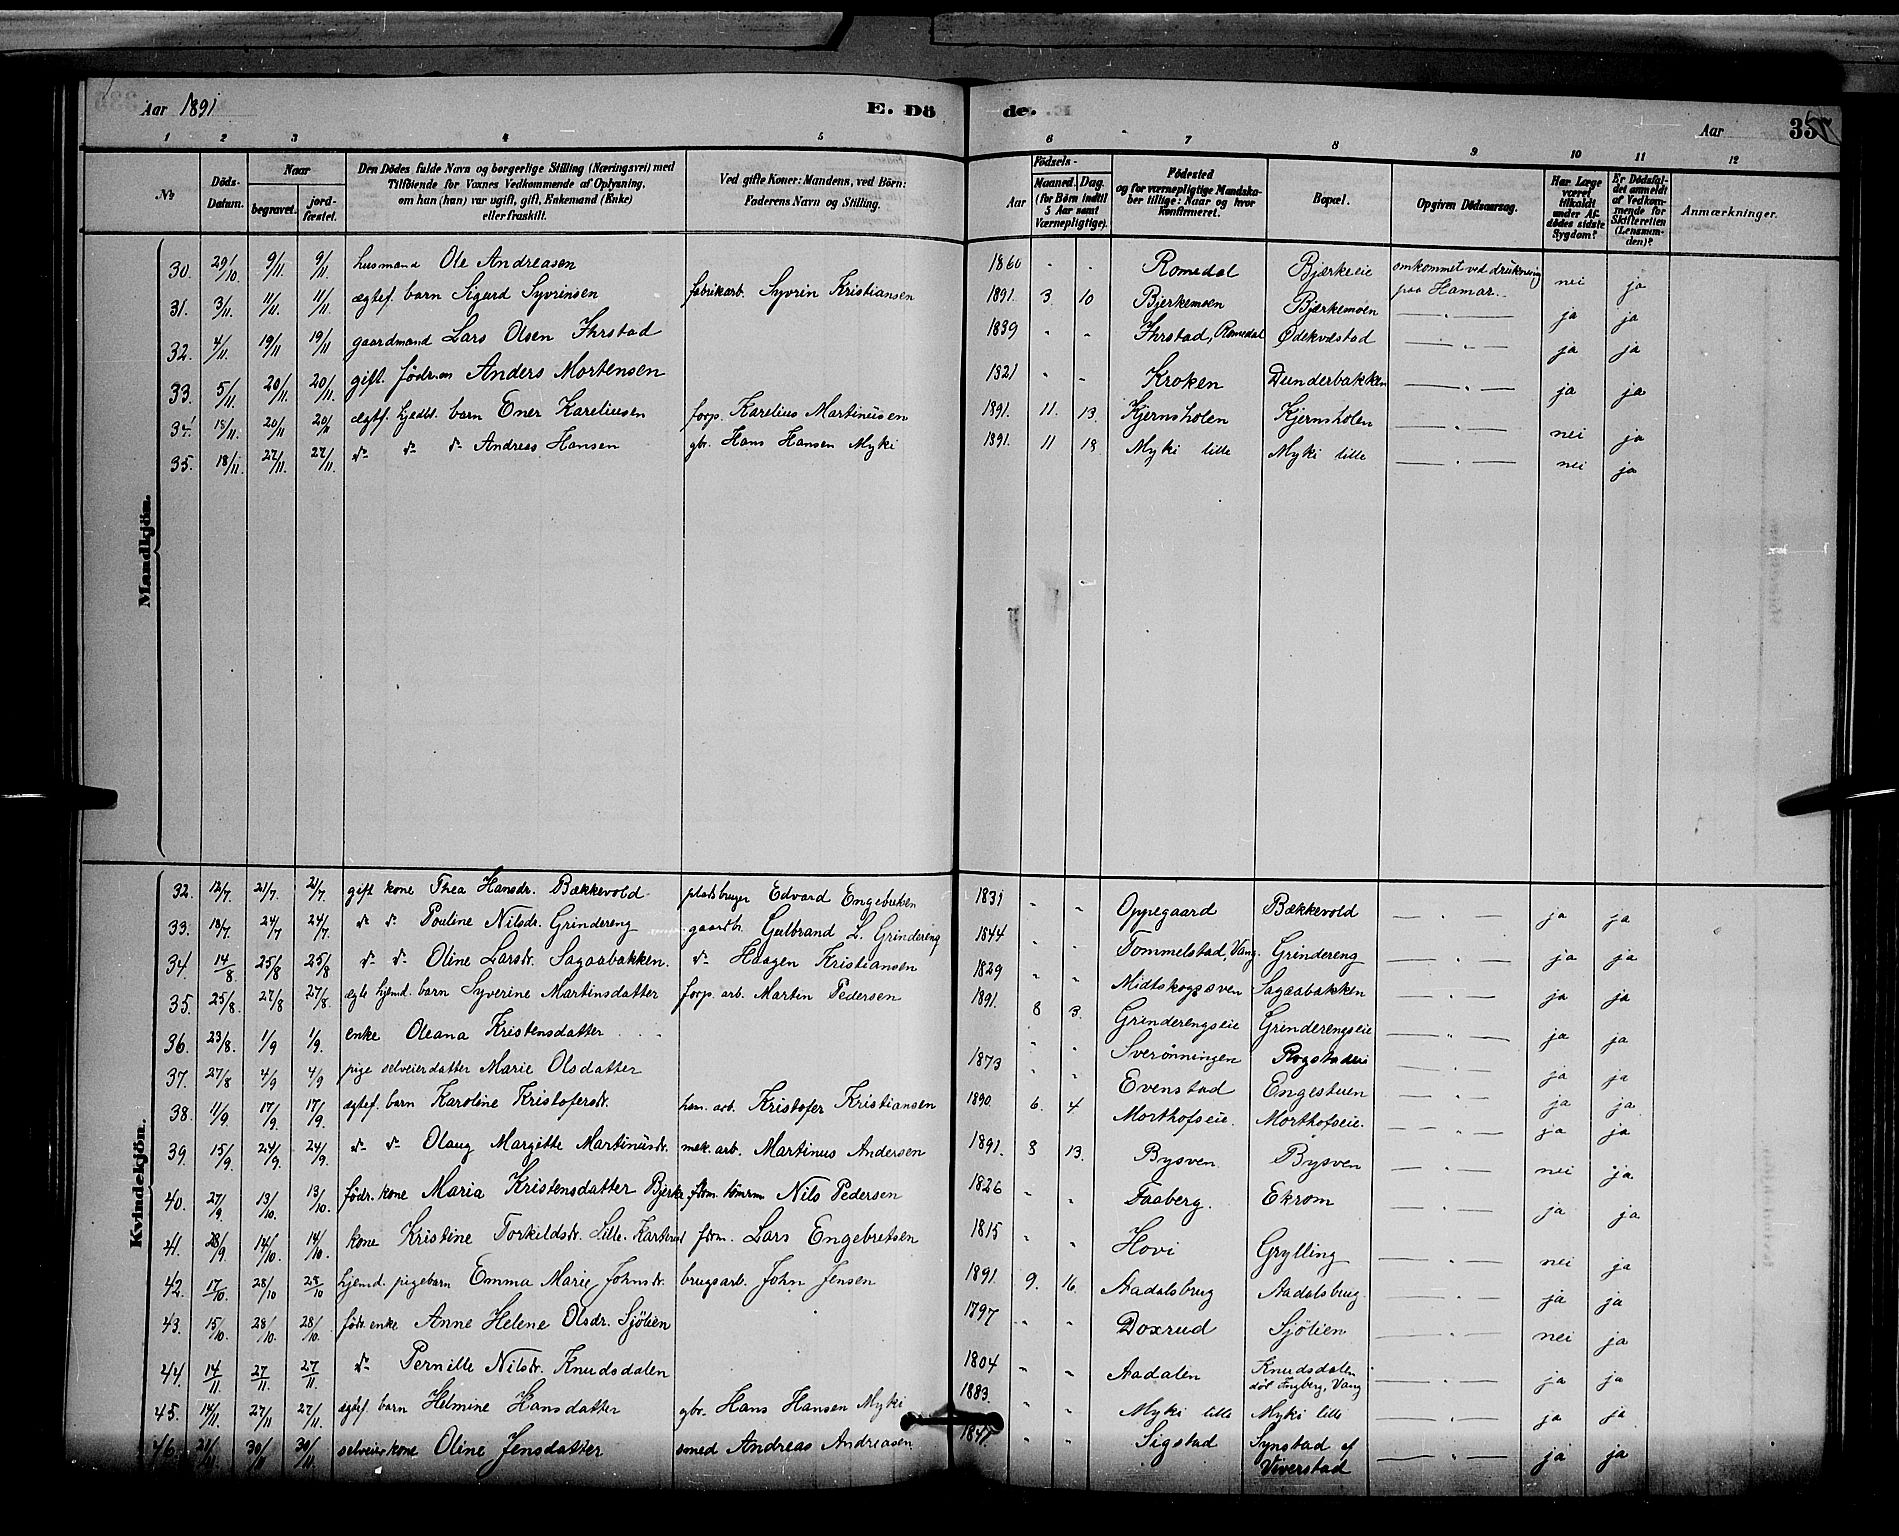 Aar 1891 E. Dö de. Aar 357
1 2 3 4 5 6 7 8 9 10 11 12
No
Döds-Datum.
Naar
begravet.
jord-fæstet.
Den Dödes fulde Navn og borgerlige Stilling (Næringsvei) med
Tilföiende for Voxnes Vedkommende af Oplysning,
om hun (han) var ugift, gift, Enkemand (Enke)
eller fraskilt.
Ved gifte Koner: Mandens, ved Börn:
Faderens Navn og Stilling.
Födsels-
Aar
Maaned. Dag.
(for Börn indtil
5 Aar samt
Værnepligtige).
Födested
og for værnepligtige Mandska-
ber tillige: Naar og hvor
konfirmeret.
Bopæl.
Opgiven Dödsaarsag.
Har Læge
været
tilkaldt
under Af-
dödes sidste
Sygdom?
Er Dödsfal-
det anmeldt
af Vedkom-
mende for
Skifteretten
(Lensman-
den)?
Anmærkninger.
Mandkjön.
30. 29/10 9/11 9/11 husmand Ole Andreasen 1860 " " Romedal Bjærkeeie omkommet ved drukning paa Hamar. nei ja
31. 3/11. 11/11. 11/11. ægtef. barn Sigurd Syvrinsen fabrikarb. Syvrin Kristiansen 1891. 3. 10 Bjerkemoen Bjærkemoen — " — ja ja
32. 4/11. 19/11 19/11 gaardmand Lars Olsen Ihrstad 1839 " " Ihrstad, Romedal Ødekvæstad — " — ja ja
33. 5/11. 20/11 20/11 gift. födr.m Anders Mortensen 1821 " " Kroken Dunderbakken — " — ja ja
34. 18/11. 20/11 20/11 ægtf. hjedbt. barn Ener Kareliusen forp. Karelius Martinusen 1891. 11. 13. Kjernsholen Kjernsholen — " — nei ja
35. 18/11. 27/11. 27/11. do do do Andreas Hansen gbr. Hans Hansen Myki 1891. 11 18 Myki lille Myki lille — " — nei ja
Kvindekjön.
32. 12/7 21/7 21/7 gift kone Thea Hansdr. Bækkevold pladsbruger Edvard Engebretsen 1831 " " Oppegaard Bækkevold — " — ja ja
33. 18/7 24/7 24/7 do do Pouline Nilsdr. Grindereng gaardbr. Gulbrand L. Grindereng 1844 " " Tommelstad, Vang Grindereng — " — ja ja
34 14/8 25/8 25/8 do do Oline Larsdr. Sagaabakken. do Haagen Kristiansen 1829 " " Midtskogsven Sagaabakken — " — ja ja
35. 25/8 27/8 27/8 ægte hjemd. barn Syverine Martinsdatter forp. arb. Martin Pedersen 1891. 8 3. Grinderengseie Grinderengseie — " — ja ja
36. 23/8. 1/9 1/9. enke Oleana Kristensdatter " " Sverönningen Rogstadeie — " — ja ja
37. 27/8 4/9 4/9 pige selveierdatter Marie Olsdatter 1873 " " Evenstad Engestuen — " — ja ja
38. 11/9 17/9. 17/9. ægtef. barn Karoline Kristofersdr. hem. arb. Kristofer Kristiansen 1890. 6. 4 Morthofseie. Morthofseie. — " — ja ja
39. 15/9. 24/9. 24/9. do do Olaug Margitte Martinusdr. mek. arb. Martinus Andersen 1891. 8 13. Bysven. Bysven — " — nei ja
40. 27/9 13/10. 13/10. födr. kone Maria Kristensdatter Bjerke fdm. tömrm Nils Pedersen 1826 " " Faaberg. Ekrom — " — ja ja
41. 28/9 14/10. 14/10. kone Kristine Torkildsdr. Lille. Karterud fdm. Lars Engebretsen 1815 " " Hovi Grylling — " — nei ja
42. 17/10 28/10 28/10 hjemd. pigebarn Emma Marie Johnsdr. brugsarb. John Jensen 1891. 9. 16. Aadalsbrug Aadalsbrug. — " — ja ja
43. 15/10. 28/10. 28/10. födr. enke Anne Helene Olsdr. Sjölien 1797 " " Doxrud Sjölien — " — nei ja
44. 14/11. 27/11. 27/11. do Pernille Nilsdr. Knudsdalen 1804 " " Aadalen Knudsdalen död Ingberg, Vang — " — ja ja
45. 14/11. 27/11 27/11. ægtef. barn Helmine Hansdatter gbr. Hans Hansen Myki 1883. " " Myki lille Myki lille — " — ja ja
46. 30/11 30/11. selveierkone Oline Jensdatter smed Andreas Andreasen " " Sigstad Synstad af Viverstad — " — ja ja